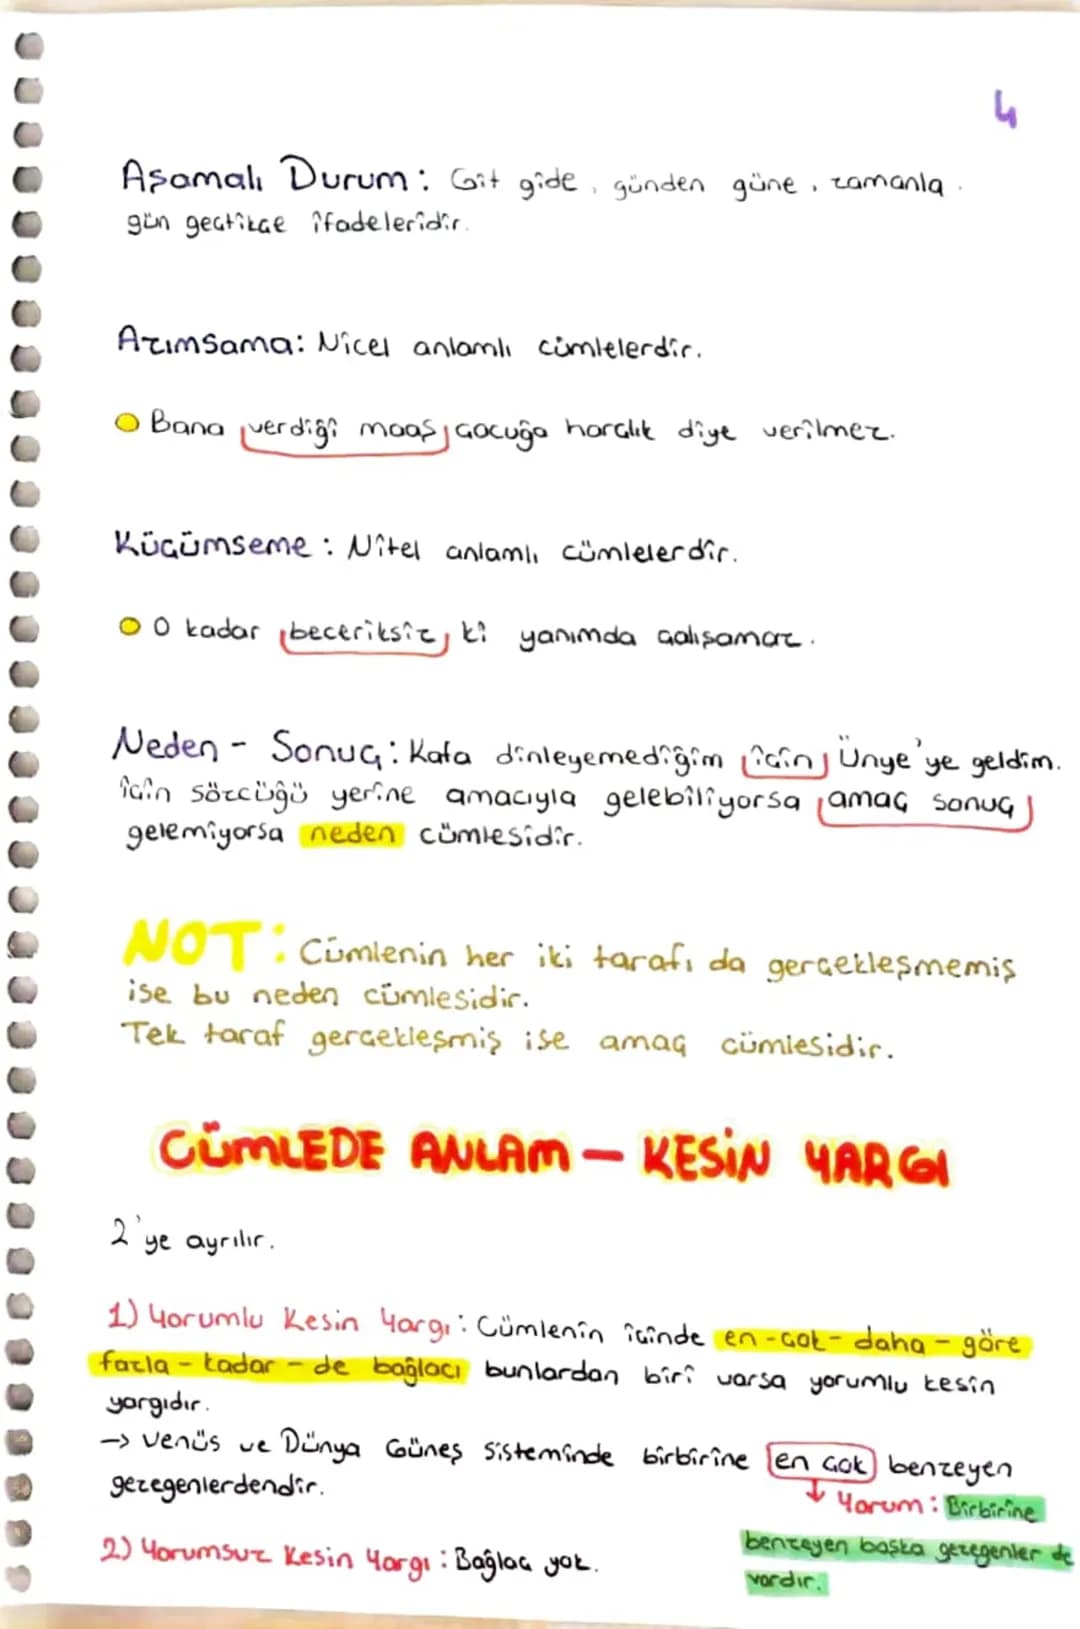 4
Aşamalı Durum: Git gide, günden güne, zamanla.
gün geçtikçe ifadeleridir.
Azımsama: Nicel anlamlı cümlelerdir.
Bana verdiği maaş çocuğa harçlık diye verilmez.
Küçümseme: Nitel anlamlı cümlelerdir.
O kadar beceriksiz ki yanımda çalışamaz.
Neden - Sonuç: Kafa dinleyemediğim için Ünye'ye geldim.
için sözcüğü yerine amacıyla gelebiliyorsa amaç sonuç
gelemiyorsa neden cümlesidir.
NOT: Cümlenin her iki tarafı da gerçekleşmemiş
ise bu neden cümlesidir.
Tek taraf gerçekleşmiş ise amaç cümlesidir.
CÜMLEDE ANLAM - KESİN YARGI
2'ye ayrılır.
1) Yorumlu Kesin Yargı: Cümlenin içinde en-çok-daha-göre
fazla-kadar-de bağlacı bunlardan biri varsa yorumlu kesin
yargıdır.
→ Venüs ve Dünya Güneş Sisteminde birbirine en çok benzeyen
gezegenlerdendir.
↓ Yorum: Birbirine
benzeyen başka gezegenler de
vardır.
2) Yorumsuz Kesin Yargı: Bağlaç yok.